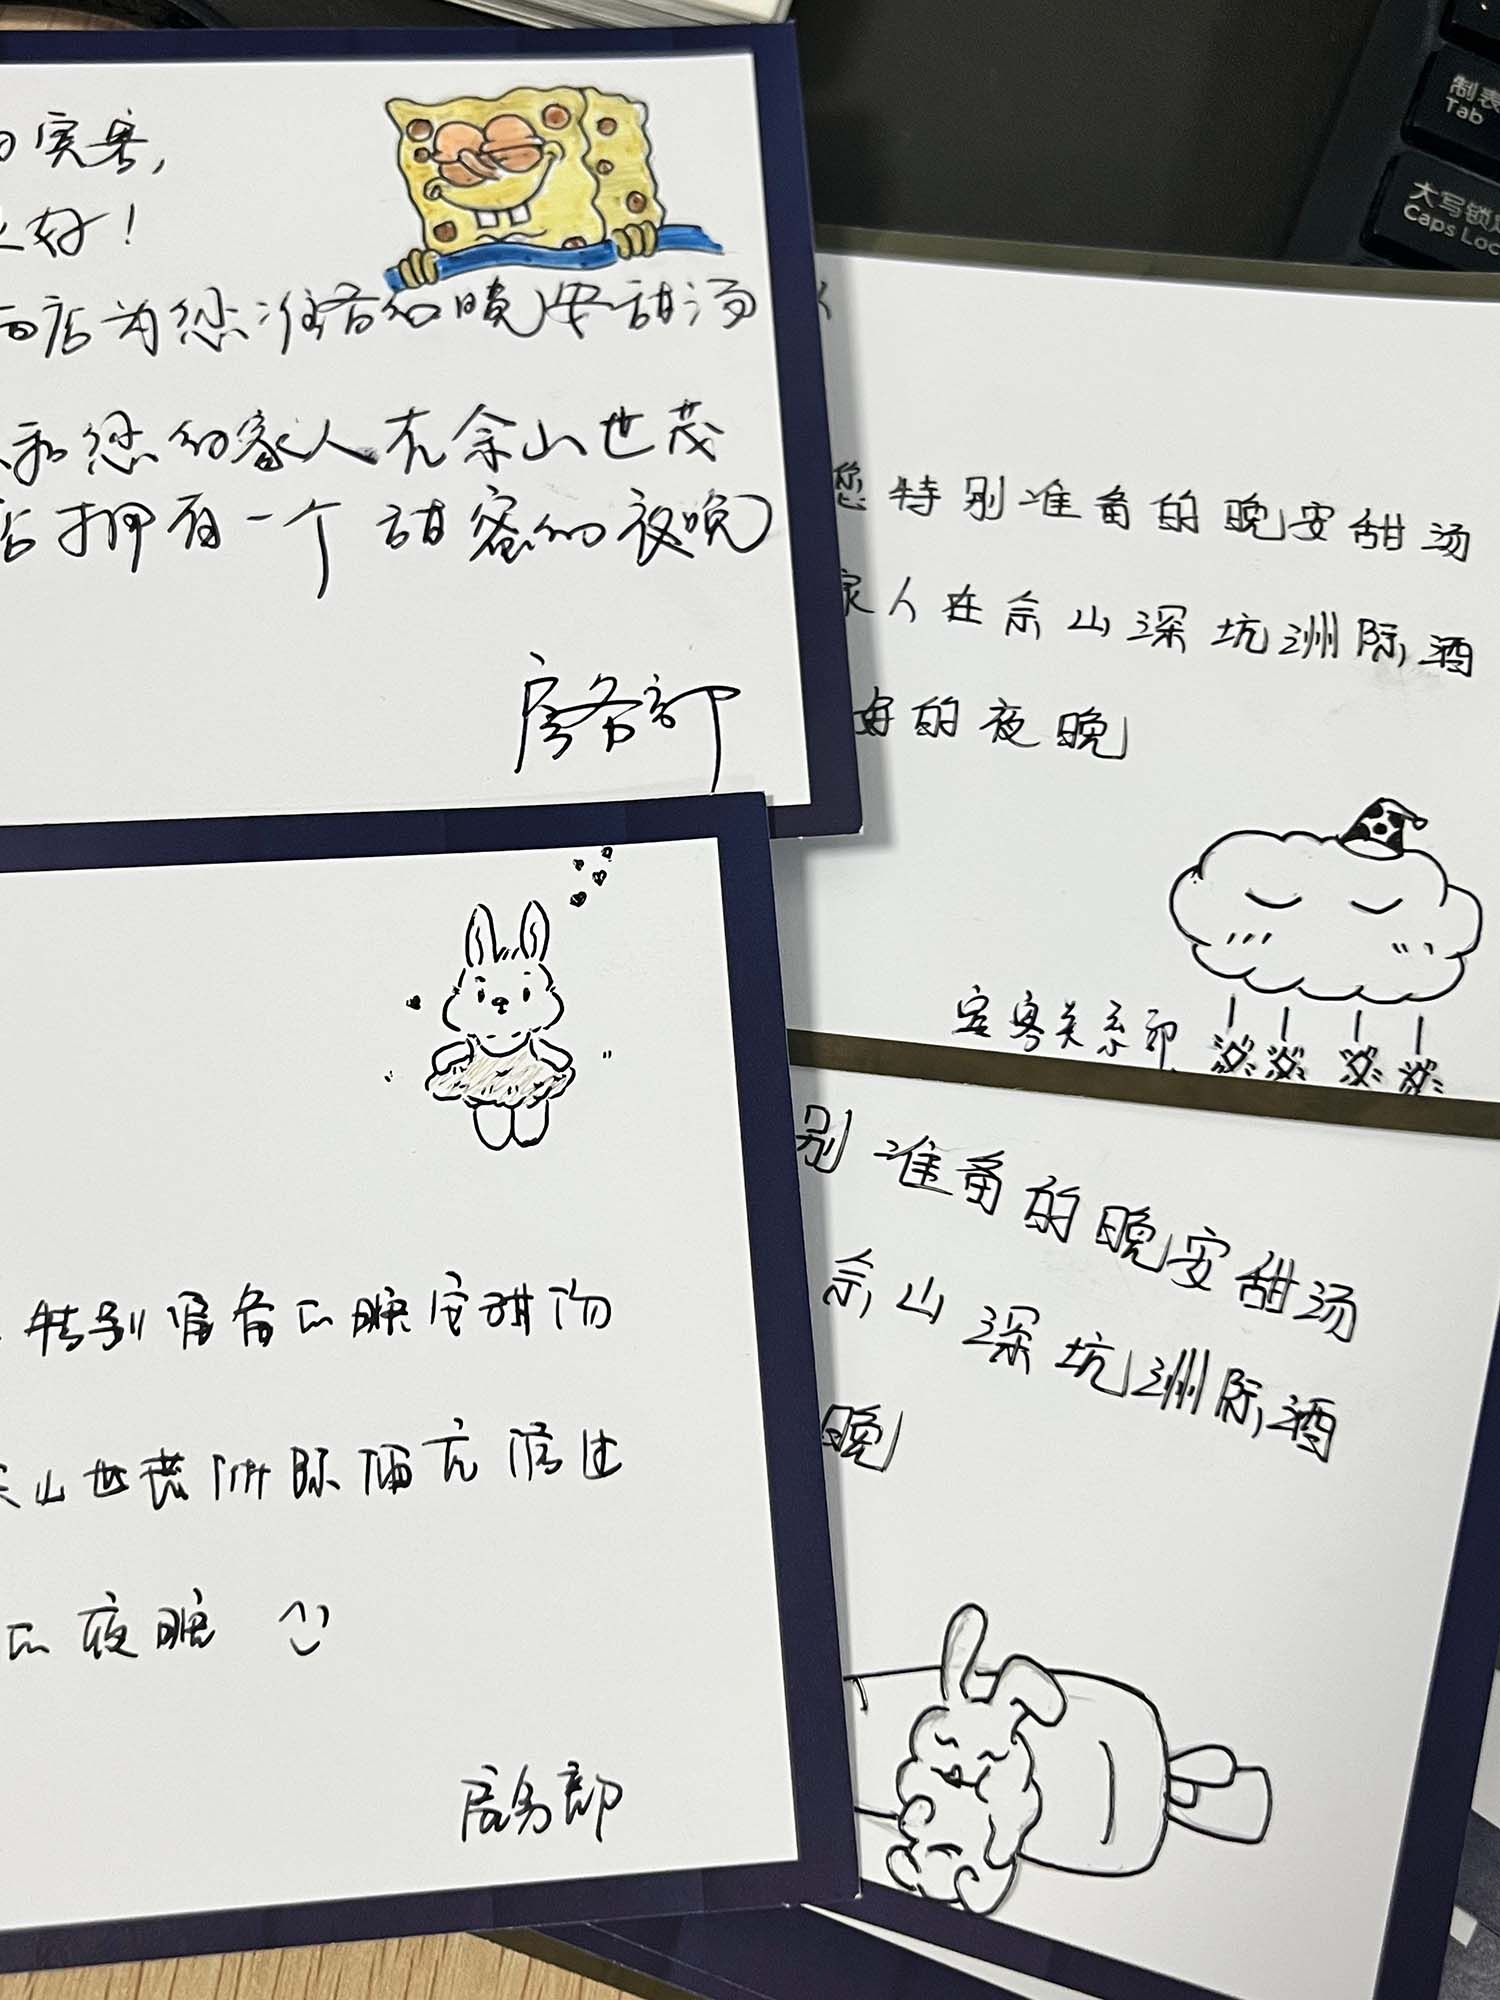 的宾客，
上好！
酒店为您准备的晚安甜汤
和您的家人在佘山世茂
店拥有一个甜蜜的夜晚
房务部
制表
Tab
大写锁定
Caps Loc
您特别准备的晚安甜汤
家人在佘山深坑洲际酒
好的夜晚
宾客关系部
特别准备的晚安甜汤
山世茂洲际酒店渡过
的夜晚
房务部
别准备的晚安甜汤
佘山深坑洲际酒
晚